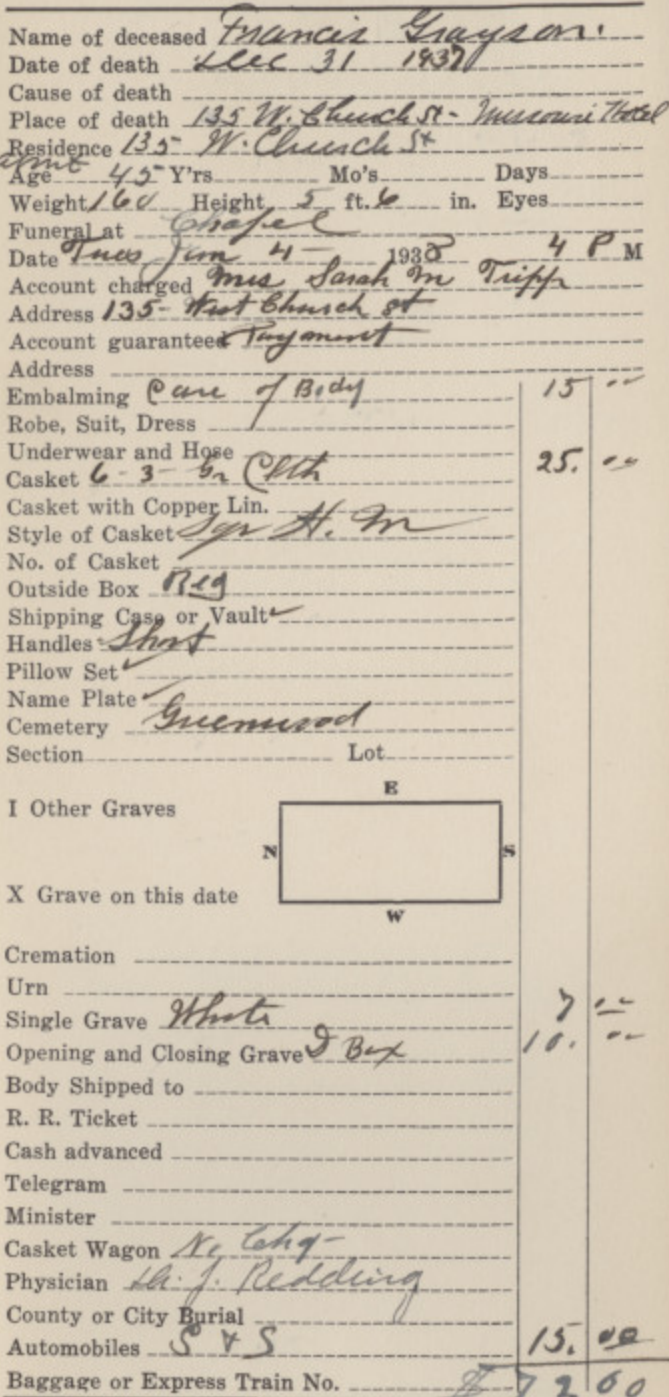 Name of deceased Francis Grayson.
Date of death Dec 31 1937
Cause of death
Place of death 135 W. Church St - Missouri Hotel
Residence 135 W. Church St
Age 45 Y'rs Mo's Days
Weight 160 Height 5 ft. 6 in. Eyes
Funeral at Chapel
Date Tues Jan 4 1938 4 P M
Account charged Mrs Sarah M Tripp
Address 135 - West Church St
Account guaranteed Payment
Address
Embalming Care of Body 15 00
Robe, Suit, Dress
Underwear and Hose
Casket 6-3- Gr Clth 25. 00
Casket with Copper Lin.
Style of Casket Sqr H. M
No. of Casket
Outside Box Reg
Shipping Case or Vault
Handles Short
Pillow Set
Name Plate
Cemetery Greenwood
Section Lot
E
I Other Graves
N S
X Grave on this date
W
Cremation
Urn
Single Grave White 7 00
Opening and Closing Grave & Box 10. 00
Body Shipped to
R. R. Ticket
Cash advanced
Telegram
Minister
Casket Wagon No Chg-
Physician J. Redding
County or City Burial
Automobiles S & S 15. 00
Baggage or Express Train No. $ 72 00